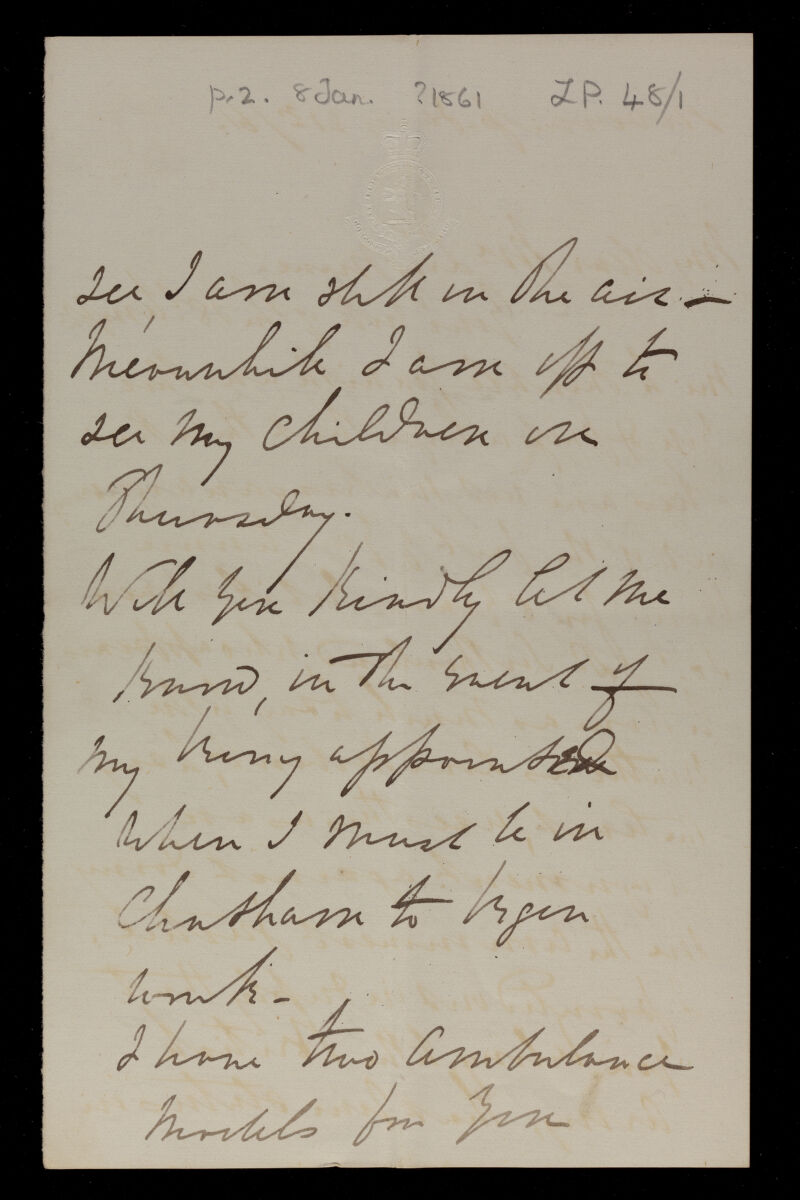 p.2. 8 Jan. ?1861 LP. 48/1
see, I am still in the air —
Meanwhile I am off to
see my children on
Thursday.
Will you kindly let me
know, in the event of
my being appointed
when I must be in
Chatham to begin
work —
I have two Ambulance
Models for you